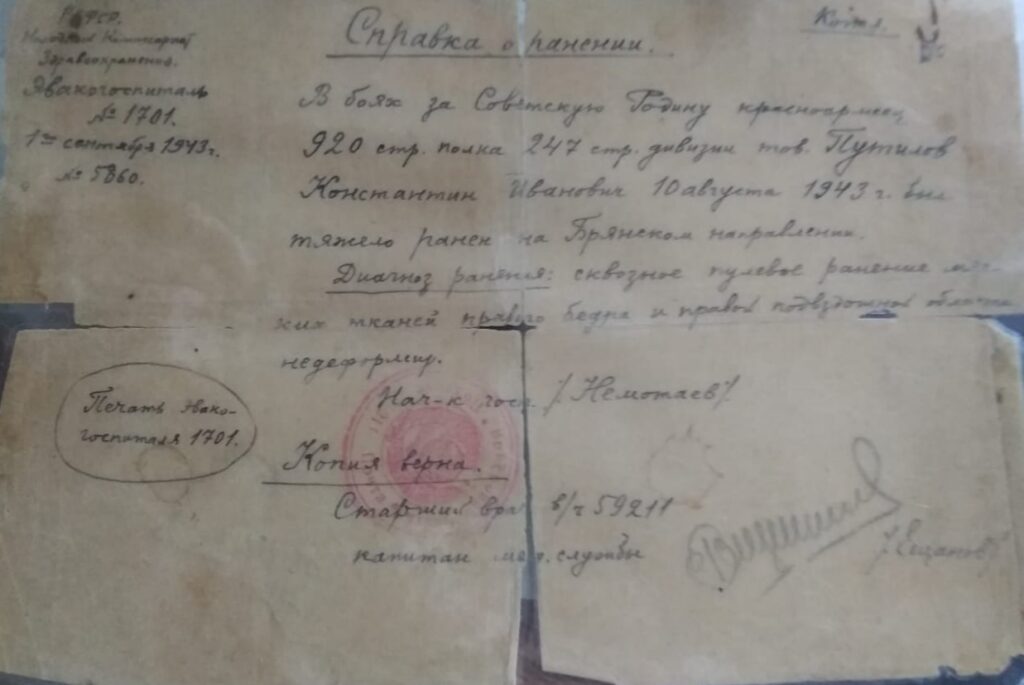 РСФСР.
Народный Комиссариат
Здравоохранения.
Эвакогоспиталь
№ 1701.
1го сентября 1943г.
№ 5860.
Копия.
Справка о ранении.
В боях за Советскую Родину красноармеец
920 стр. полка 247 стр. дивизии тов. Путилов
Константин Иванович 10 августа 1943 г. был
тяжело ранен на Брянском направлении.
Диагноз ранения: сквозное пулевое ранение мяг-
ких тканей правого бедра и правой подвздошной области
недеформир.
Нач-к госп. /Немотаев/
Печать эвако-
госпиталя 1701.
Копия верна.
Старший врач в/ч 59211
капитан мед. службы